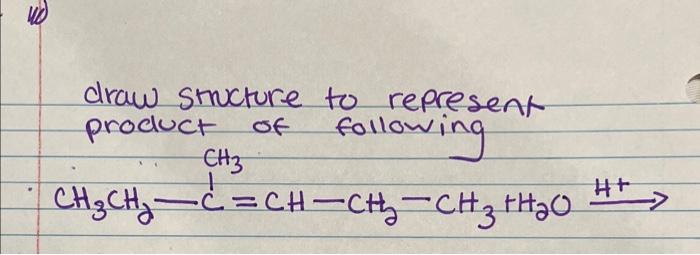 draw structure to represent
product of following
CH3
CH3CH2—C=CH—CH2—CH3+H2O H+ →